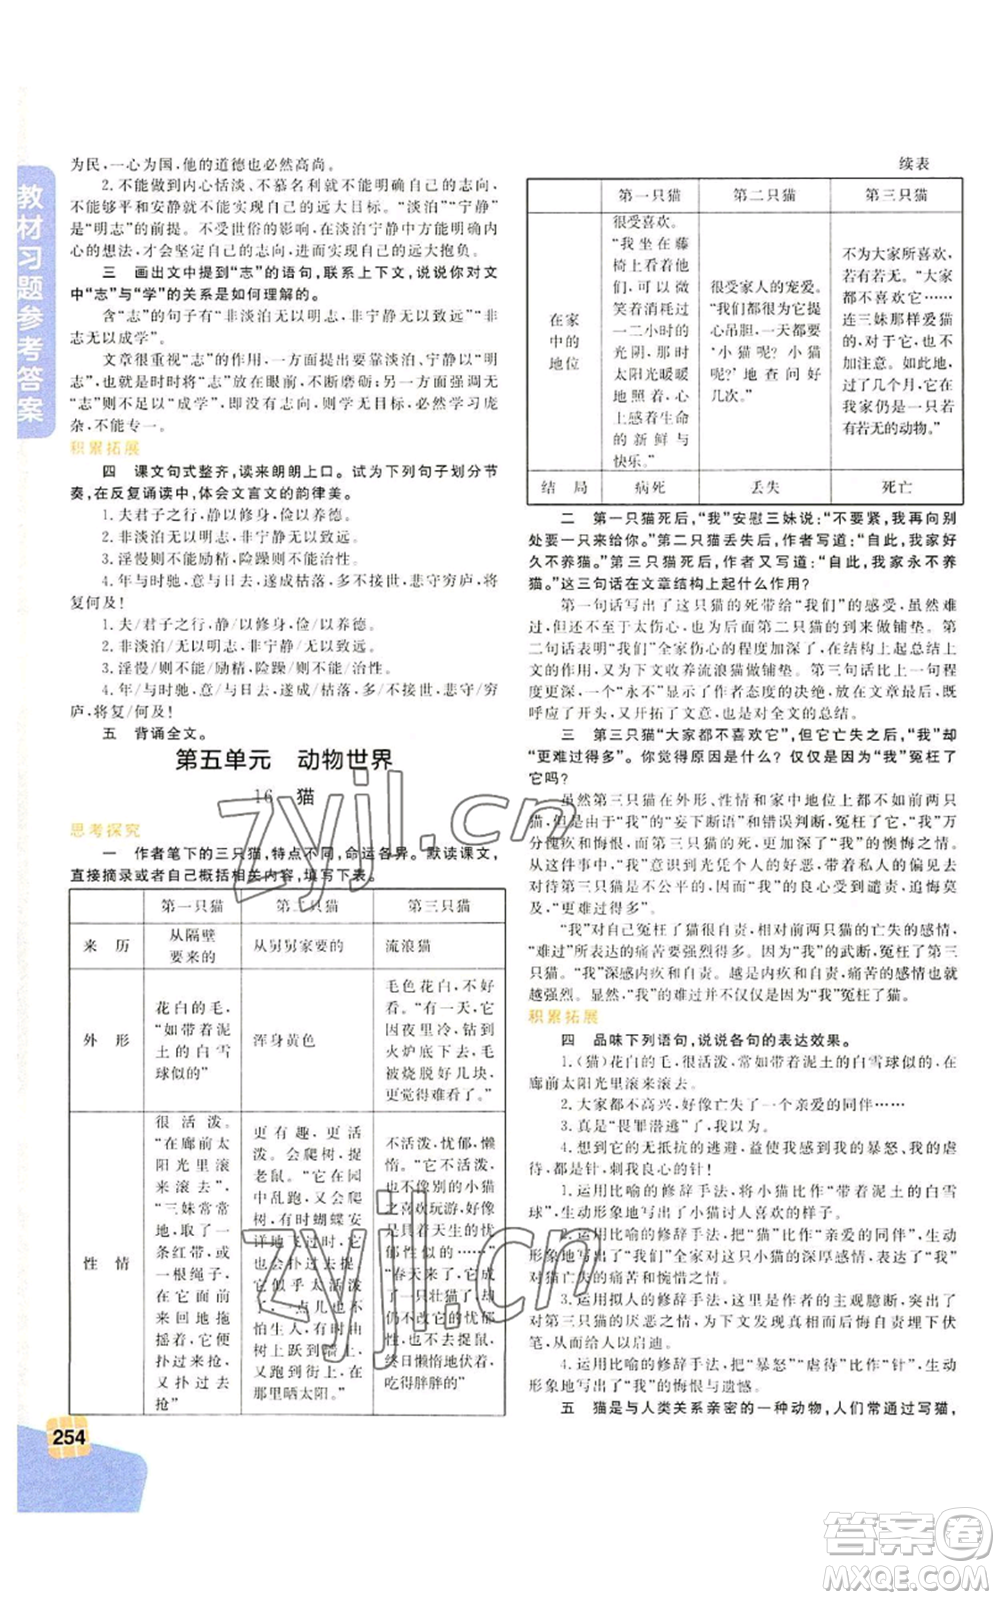 教材习题参考答案
为民,一心为国,他的道德也必然高尚。
2.不能做到内心恬淡、不慕名利就不能明确自己的志向,
不能够平和安静就不能实现自己的远大目标。“淡泊”“宁静”
是“明志”的前提。不受世俗的影响,在淡泊宁静中方能明确
内心的想法,才会坚定自己的志向,进而实现自己的远大抱负。
三 画出文中提到“志”的语句,联系上下文,说说你对文
中“志”与“学”的关系是如何理解的。
含“志”的句子有“非淡泊无以明志,非宁静无以致远”“非
志无以成学”。
文章很重视“志”的作用,一方面提出要靠淡泊、宁静以“明
志”,也就是时时将“志”放在眼前,不断磨砺;另一方面又说无
“志”则不足以“成学”,即没有志向,则无目标,必然学习庞
杂,不能专一。
积累拓展
四 课文句式整齐,读来朗朗上口。试为下列句子划分节
奏,在反复诵读中,体会文言文的韵律美。
1.夫君子之行,静以修身,俭以养德。
2.非淡泊无以明志,非宁静无以致远。
3.淫慢则不能励精,险躁则不能治性。
4.年与时驰,意与日去,遂成枯落,多不接世,悲守穷庐,将
复何及!
1.夫/君子之行,静/以修身,俭/以养德。
2.非淡泊/无以明志,非宁静/无以致远。
3.淫慢/则不能/励精,险躁/则不能/治性。
4.年/与时驰,意/与日去,遂/成枯落,多/不接世,悲守/穷
庐,将复/何及!
五 背诵全文。
第五单元 动物世界
16 猫
思考探究
一 作者笔下的三只猫,特点不同,命运各异。默读课文,
直接摘录或者自己概括相关内容,填写下表。
第一只猫 第二只猫 第三只猫
来历 从隔壁要来的 从舅舅家要的 流浪猫
外形 花白的毛,“如带着泥土的白雪球似的” 浑身黄色 毛色花白,不好看。“有一天,它因夜里冷,钻到火炉底下去,毛被烧脱好几块,更觉得难看了”
性情 很活泼。“在廊前太阳光里滚来滚去”“三妹常常地,取了一条红带,或一根绳子,在它面前来回地拖摇着,它便扑过来抢,又扑过去抢” 更有趣,更活泼。会爬树,捉老鼠。“它在园中乱跑,又会爬树,有时蝴蝶安详地飞过时,它也会扑过去捉。它似乎太活泼了,一点儿也不怕生人,有时由树上跃到墙上,又跑到街上,在那里晒太阳。” 不活泼,忧郁,懒惰。“它不活泼,也不像别的小猫之喜欢玩游,好像是具着天生的忧郁性似的”“春天来了,它成了一只壮猫了,却仍不改它的忧郁性,也不去捉鼠,终日懒惰地伏着,吃得胖胖的”
续表
第一只猫 第二只猫 第三只猫
在家中的地位 很受喜欢。“我坐在藤椅上看着他们,可以微笑着消耗过一二小时的光阴,那时太阳光暖暖地照着,心上感着生命的新鲜与快乐。” 很受家人的宠爱。“我们都很为它提心吊胆,一天都要‘小猫呢?小猫呢?’地查问好几次。” 不为大家所喜欢。“大家都不喜欢它……连三妹那样爱猫的,对于它,也不加注意。如此地,过了几个月,它在我家仍是一只若有若无的动物。”
结局 病死 丢失 死亡
二 第一只猫死后,“我”安慰三妹说:“不要紧,我再向别
处要一只来给你。”第二只猫丢失后,作者写道:“自此,我家好
久不养猫。”第三只猫死后,作者又写道:“自此,我家永不养
猫。”这三句话在文章结构上起什么作用?
第一句话写出了这只猫的死带给“我们”的感受,虽然难
过,但还不至于太伤心,也为后面第二只猫的到来做铺垫。第
二句话表明“我们”全家伤心的程度加深了,在结构上起总结上
文的作用,又为下文收养流浪猫做铺垫。第三句话比上一句程
度更深,一个“永不”显示了作者态度的决绝,放在文章最后,既
呼应了开头,又开拓了文意,也是对全文的总结。
三 第三只猫“大家都不喜欢它”,但它亡失之后,“我”却
“更难过得多”。你觉得原因是什么?仅仅是因为“我”冤枉了
它吗?
虽然第三只猫在外形、性情和家中地位上都不如前两只
猫,但是由于“我”的“妄下断语”和错误判断,冤枉了猫,“我”万
分愧疚和懊悔,更难过的是猫死了,“我”的懊悔之情无处倾诉。
从这件事情中,“我”意识到光凭个人的好恶、私心和偏见去对
待第三只猫是不公平的,“我”的良心受到谴责,追悔莫
及,“更难过得多”。
“我”对自己冤枉了猫很自责,相对前两只猫的亡失的感情,
“难过”所表达的痛苦要强烈得多。“我”的武断,冤枉了第三
只猫。“我”深感内疚和自责。越是内疚自责,痛苦的感情也就
越强烈。显然,“我”的难过并不仅仅是因为“我”冤枉了猫。
积累拓展
四 品味下列语句,说说各句的表达效果。
1.(猫)花白的毛,很活泼,常如带着泥土的白雪球似的,在
廊前太阳光里滚来滚去。
2.大家都不高兴,好像亡失了一个亲爱的同伴……
3.真是“畏罪潜逃”了,我以为。
4.想到它的无抵抗的逃避,益使我感到我的暴怒、我的虐
待,都是针,刺我良心的针!
1.运用比喻的修辞手法,将小猫比喻成“带着泥土的白雪
球”,生动形象地写出了小猫讨人喜欢的样子。
2.运用比喻的修辞手法,把“猫”比喻成“亲爱的同伴”,生动
形象地写出了“我们”全家对这只小猫的深厚感情,表达了“我”
对猫亡失的痛苦和惋惜之情。
3.运用拟人的修辞手法,这里是作者的主观臆断,突出了
对第三只猫的厌恶之情,为下文真相大白后悔自责埋下伏
笔,从而给人以启迪。
4.运用比喻的修辞手法,把“暴怒”“虐待”比作“针”,生动
形象地写出了“我”的悔恨与遗憾。
五 猫是与人类关系亲密的一种动物,人们常通过写猫,
254
zyjl.cn
zyjl.cn
答案卷
MXQE.COM